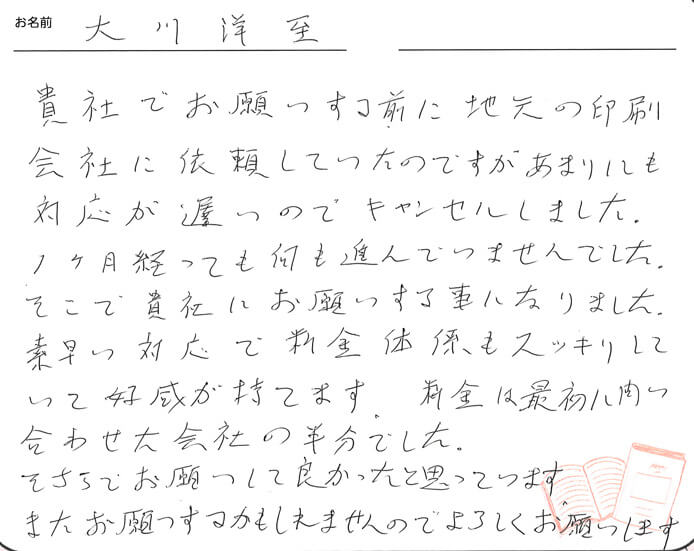 お名前 大川洋至
貴社でお願いする前に地元の印刷
会社に依頼していたのですがあまりにも
対応が遅いのでキャンセルしました。
1ヶ月経っても何も進んでいませんでした。
そこで貴社にお願いする事になりました。
素早い対応で料金体係もスッキリして
いて好感が持てます。料金は最初に問い
合わせた会社の半分でした。
そちらでお願いして良かったと思っています
またお願いするかもしれませんのでよろしくお願いします